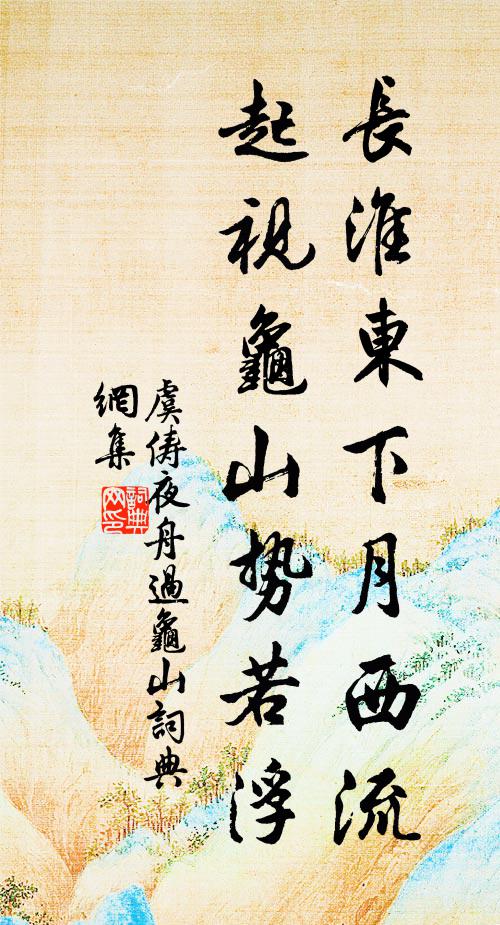 長淮東下月西流
起視龜山势若浮
虞俦夜舟過龜山詞典
網集
詞典
网印